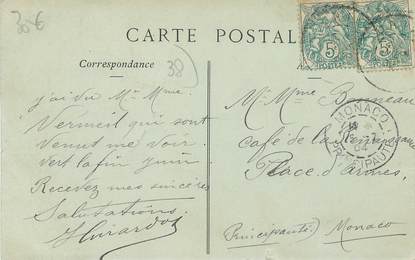 35€
CARTE POSTALE
Correspondance
38
j'ai vu Mr Mme
Vermeil qui sont
venut me voir
vert la fin juin
Recevez mes sincères
Salutations
Mr Mme
café de la
Place d'armes
(Principauté) Monaco
5c 5c
MONACO
PRINCIPAUTÉ
04